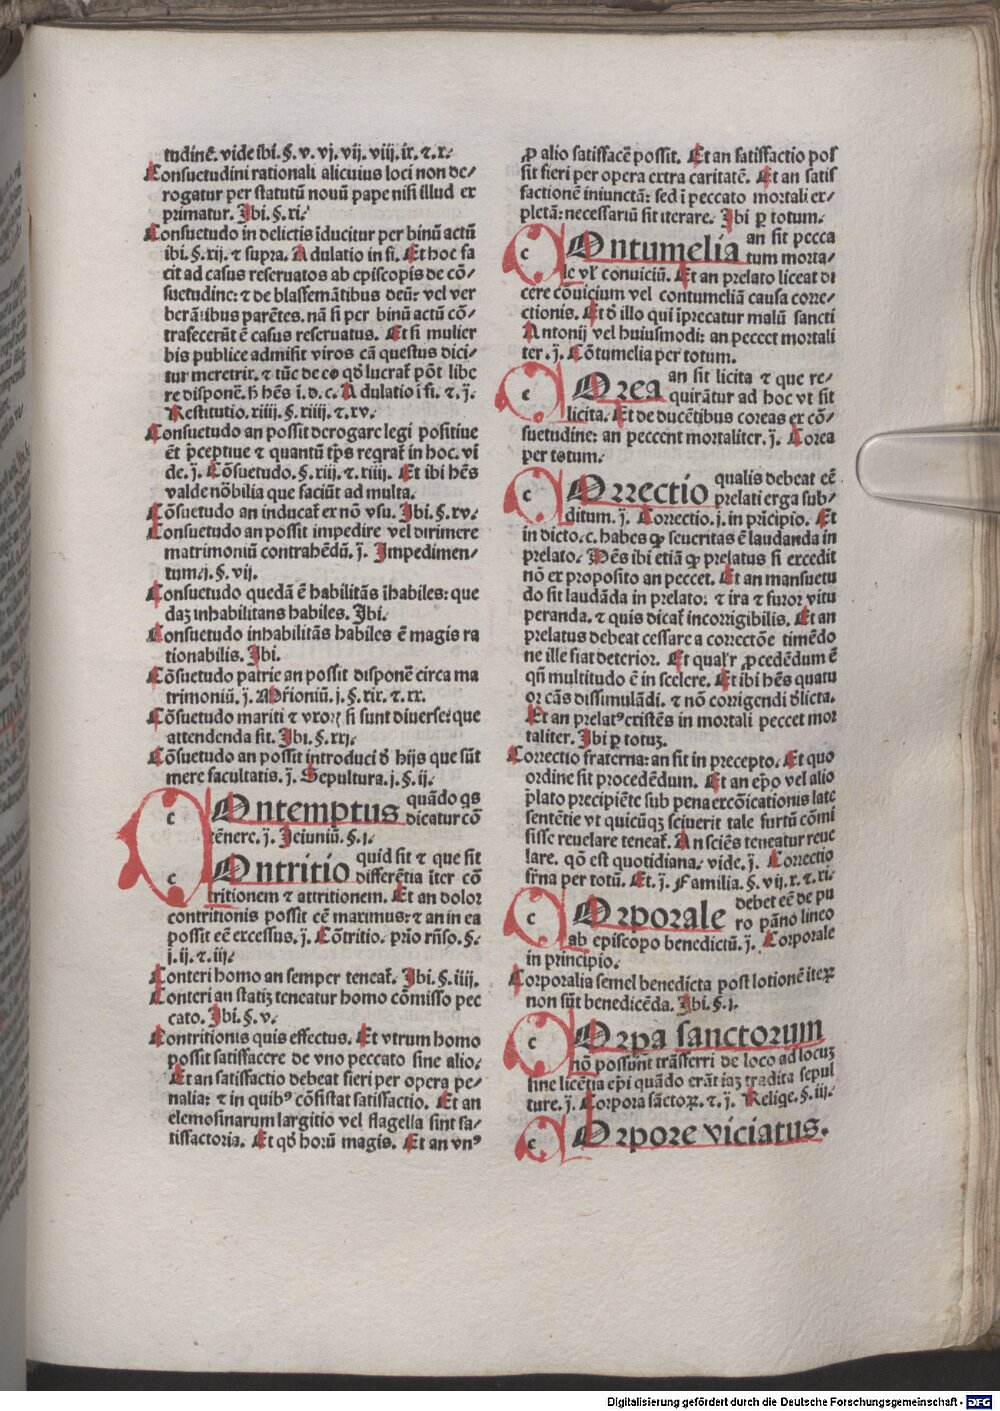 tudinē. vide ibi. §. v. vj. vij. viij. ix. ⁊. x.
Consuetudini rationali alicuius loci non de/
rogatur per statutū nouū pape nisi illud ex
primatur. Ibi. §. xi.
Consuetudo in delictis īducitur per binū actū
ibi. §. xij. ⁊ supra. Adulatio in fi. Et hoc fa
cit ad casus reseruatos ab episcopis de cō/
suetudine: ⁊ de blasfemātibus deū: vel ver
berātibus parētes. nā si per binū actū cō/
trafecerūt ē casus reseruatus. Et si mulier
bis publice admisit viros cā questus dici/
tur meretrix. ⁊ tūc de eo qd̄ lucrat̄ pōt libe
re disponē. h̄ hēs j. d. c. Adulatio ī fi. ⁊. j̄.
Restitutio. xiiij. §. xiiij. ⁊. xv.
Consuetudo an possit derogare legi positiue
ēt p̄ceptiue ⁊ quantū tp̄s reqrat̄ in hoc. vi
de. j̄. Cōsuetudo. §. xiij. ⁊. xiiij. Et ibi hēs
valde nōbilia que faciūt ad multa.
Cōsuetudo an inducat̄ ex nō vsu. Ibi. §. xv.
Consuetudo an possit impedire vel dirimere
matrimoniū contrahēdū. j̄. Impedimen/
tum. j. §. vij.
Consuetudo quedā ē habilitās īhabiles: que
daꝫ inhabilitans habiles. Ibi.
Consuetudo inhabilitās habiles ē magis ra
tionabilis. Ibi.
Cōsuetudo patrie an possit disponē circa ma
trimoniū. j̄. Mr̄ioniū. j. §. xix. ⁊. xx.
Cōsuetudo mariti ⁊ vxorꝫ si sunt diuerse: que
attendenda sit. Ibi. §. xxj.
Cōsuetudo an possit introduci d̄ hijs que sūt
mere facultatis. j̄. Sepultura. j. §. ij.
COntemptus quādo qs
dicatur cō
tēnere. j̄. Ieiuniū. §. j.
COntritio quid sit ⁊ que sit
differētia īter cō
tritionem ⁊ attritionem. Et an dolor
contritionis possit eē maximus: ⁊ an in ea
possit eē excessus. j̄. Cōtritio. prīo rn̄so. §.
j. ij. ⁊. iij.
Conteri homo an semper teneat̄. Ibi. §. iiij.
Conteri an statiꝫ teneatur homo cōmisso pec
cato. Ibi. §. v.
Contritionis quis effectus. Et vtrum homo
possit satisfacere de vno peccato sine alio.
Et an satisfactio debeat fieri per opera pe/
nalia: ⁊ in quibꝰ cōsistat satisfactio. Et an
elemosinarum largitio vel flagella sint sa/
tisfactoria. Et qd̄ horū magis. Et an vnꝰ
ꝓ alio satisfacē possit. Et an satisfactio pos
sit fieri per opera extra caritatē. Et an satis
factionē iniunctā: sed ī peccato mortali ex/
pletā: necessariū sit iterare. Ibi ꝑ totum.
COntumelia an sit pecca
tum morta/
le vl̄ conuiciū. Et an prelato liceat di
cere cōuicium vel contumeliā causa corre/
ctionis. Et d̄ illo qui īprecatur malū sancti
Antonij vel huiusmodi: an peccet mortali
ter. j̄. Cōtumelia per totum.
COrea an sit licita ⁊ que re/
quirātur ad hoc vt sit
licita. Et de ducētibus coreas ex cō/
suetudine: an peccent mortaliter. j̄. Corea
per totum.
COrrectio qualis debeat eē
prelati erga sub/
ditum. j̄. Correctio. j. in prīcipio. Et
in dicto. c. habes ꝙ seueritas ē laudanda in
prelato. Hēs ibi etiā ꝙ prelatus si excedit
nō ex proposito an peccet. Et an mansuetu
do sit laudāda in prelato. ⁊ ira ⁊ furor vitu
peranda. ⁊ quis dicat̄ incorrigibilis. Et an
prelatus debeat cessare a correctōe timēdo
ne ille fiat deterior. Et qualr̄ ꝓcedēdum ē
qn̄ multitudo ē in scelere. Et ibi hēs quatu
or cās dissimulādi. ⁊ nō corrigendi d̄licta.
Et an prelatꝰ existēs in mortali peccet mor
taliter. Ibi ꝑ totuꝫ.
Correctio fraterna: an sit in precepto. Et quo
ordine sit procedēdum. Et an ep̄o vel alio
p̄lato precipiēte sub pena excōicationis late
sentētie vt quicūqꝫ sciuerit tale furtū cōmi
sisse reuelare teneat̄. An sciēs teneatur reue
lare. qō est quotidiana. vide. j̄. Correctio
fr̄na per totū. Et. j̄. Familia. §. vij. x. ⁊. xi.
COrporale debet eē de pu
ro pāno lineo
ab episcopo benedictū. j̄. Corporale
in principio.
Corporalia semel benedicta post lotionē iteꝝ
non sūt benedicēda. Ibi. §. j.
COrpa sanctorum
nō possunt trāsferri de loco ad locuꝫ
sine licētia ep̄i quādo erāt iaꝫ tradita sepul
ture. j̄. Corpora sāctoꝝ. ⁊. j̄. Relige. §. iij.
COrpore viciatus.
Digitalisierung gefördert durch die Deutsche Forschungsgemeinschaft - DFG